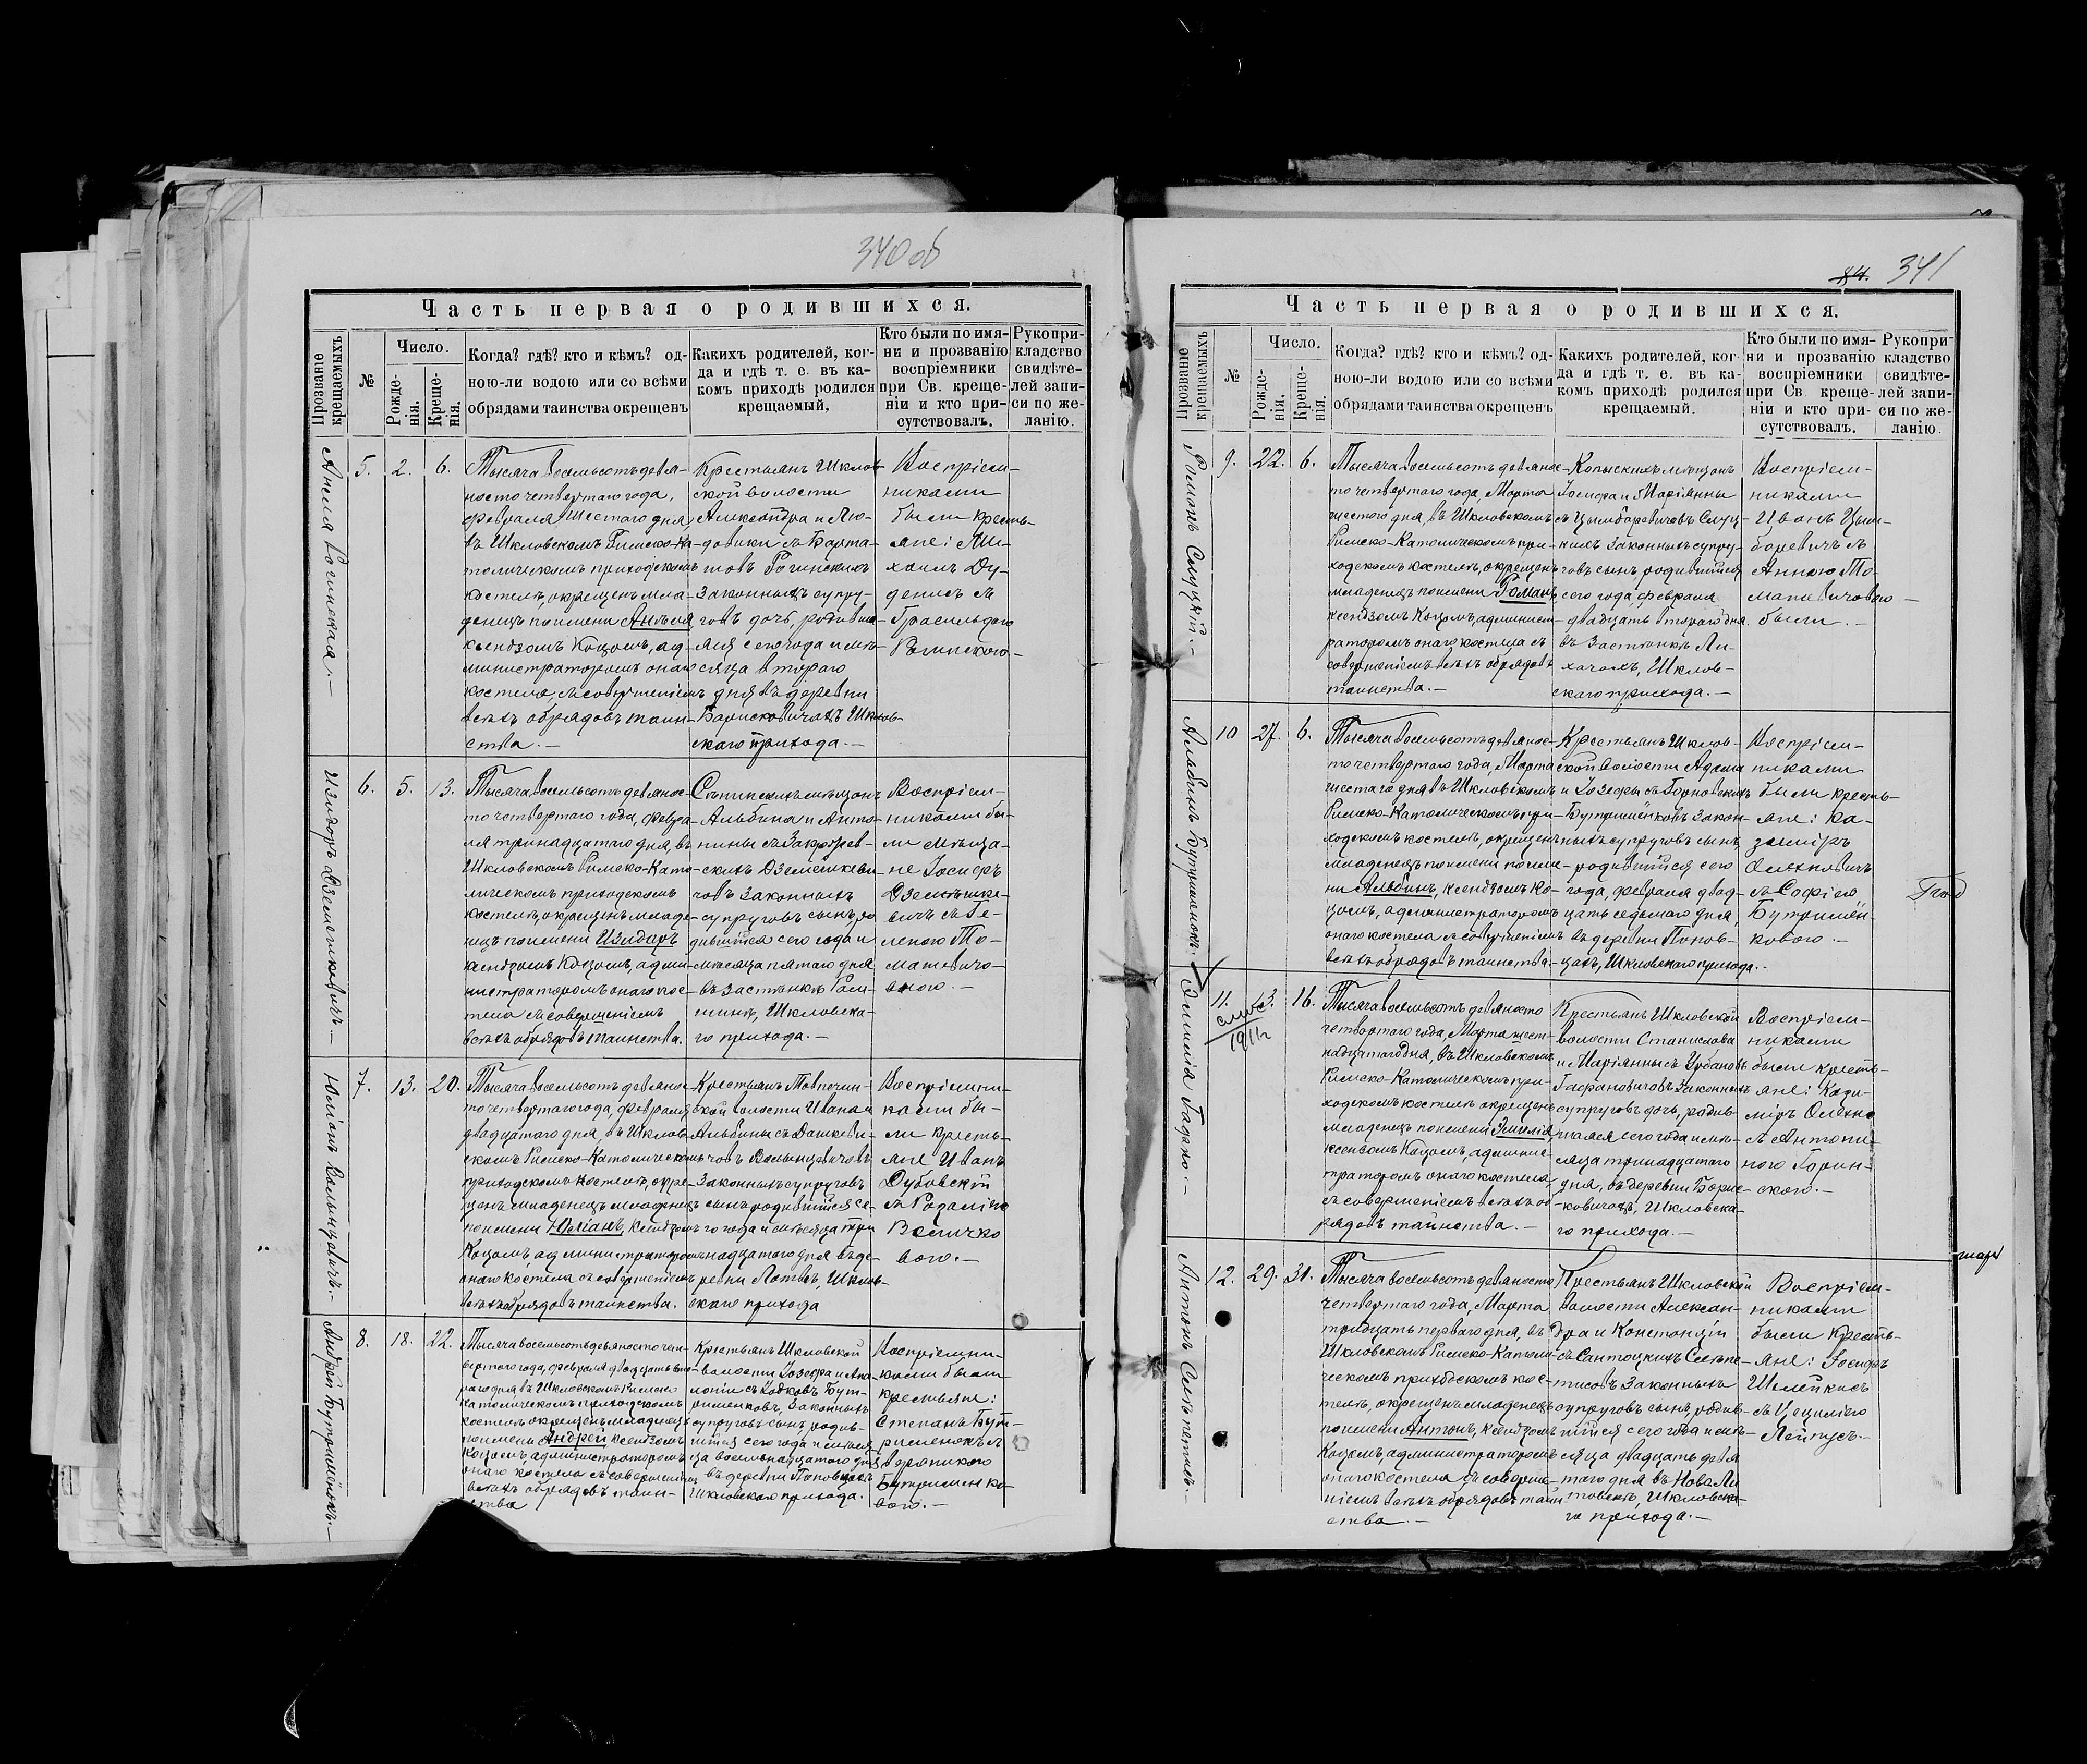 340 об
Часть первая о родившихся.
Прозваніе крещаемыхъ
№
Число.
Рожде-
нія.
Креще-
нія.
Когда? гдѣ? кто и кѣмъ? од-
ною-ли водою или со всѣми
обрядами таинства окрещенъ
Какихъ родителей, ког-
да и гдѣ т. е. въ ка-
комъ приходѣ родился
крещаемый.
Кто были по имя-
ни и прозванію
воспріемники
при Св. креще-
ніи и кто при-
сутствовалъ.
Рукопри-
кладство
свидѣте-
лей запи-
си по же-
ланію.
Анеля Рогинская.-
5.
2.
6.
Тысяча восемьсотъ девя-
носто четвертаго года,
февраля шестаго дня
въ Шкловскомъ Римско-Ка-
толическомъ приходскомъ
костелѣ, окрещенъ мла-
денецъ по имени Анеля
ксендзомъ Коцомъ, ад-
министраторомъ онаго
костела, съ совершеніемъ
всѣхъ обрядовъ таин-
ства.-
Крестьянъ Шклов-
ской волости
Александра и Лю-
довики съ
Рогинскихъ
законныхъ супру-
говъ дочь, родивша-
яся сего года и мѣ-
сяца втораго
дня въ деревни
Борисковичахъ Шклов-
скаго прихода.-
Воспріем-
никами
были кресть-
яне: Ми-
хаилъ Ду-
денисъ съ
Рогинскою-
Изидоръ Дземешкевичъ-
6.
5.
13.
Тысяча восемьсотъ девянос-
то четвертаго года, февра-
ля тринадцатаго дня, въ
Шкловскомъ Римско-Като-
лическомъ приходскомъ
костелѣ, окрещенъ младе-
нецъ по имени Изидоръ
ксендзомъ Коцомъ, адми-
нистраторомъ онаго кос-
тела съ совершеніемъ
всѣхъ обрядовъ таинства.
мѣщанъ
Альбина и Анто-
нины съ Закржев-
скихъ Дземешкеви-
човъ законныхъ
супруговъ сынъ, ро
дившійся сего года и
мѣсяца пятаго дня
въ застѣнкѣ
Шкловска-
го прихода.-
Воспріем-
никами бы-
ли мѣща-
не Іосифъ
Дземешке-
вичъ съ Ге-
леною То-
матевичо-
вою.-
Юліанъ Волынцевичъ.-
7.
13.
20.
Тысяча восемьсотъ девянос
то четвертаго года, февраля
двадцатаго дня, въ Шклов-
скомъ Римско-Католическомъ
приходскомъ костелѣ, окре-
щенъ младенецъ младенецъ
по имени Юліанъ, ксендзомъ
Коцомъ, администраторомъ
онаго костела съ совершеніемъ
всѣхъ обрядовъ таинства.
Крестьянъ Толпочин-
ской волости Ивана и
Альбины съ Дашкеви-
човъ Волынцевичовъ
законныхъ супруговъ
сынъ родившійся се-
го года и мѣсяца три
надцатаго дня въ де-
ревни Латвѣ, Шклов-
скаго прихода
Воспріемни-
ками бы-
ли кресть-
яне Иванъ
Дубовскій
съ Розаліею
Величко
вою.-
Андрей Бутримёнокъ.-
8.
18.
22.
Тысяча восемьсотъ девяносто чет-
вертаго года, февраля двадцать вто-
раго дня въ Шкловскомъ Римско
Католическомъ приходскомъ
костелѣ окрещенъ младенецъ
по имени Андрей, ксендзомъ
Коцомъ, администраторомъ
онаго костела съ совершеніемъ
всѣхъ обрядовъ таин-
ства
Крестьянъ Шкловской
волости Іозефа и Апо-
лоніи съ Бут-
рименковъ, законныхъ
супруговъ сынъ, родив-
шійся сего года и мѣся-
ца восемнадцатаго дня
въ деревни Поповцахъ
Шкловскаго прихода.
Воспріемни-
ками были
крестьяне:
Степанъ Бут-
рименокъ съ
Вероникою
Бутрименко
вою.-
84. 341
Часть первая о родившихся.
Прозваніе крещаемыхъ
№
Число.
Рожде-
нія.
Креще-
нія.
Когда? гдѣ? кто и кѣмъ? од-
ною-ли водою или со всѣми
обрядами таинства окрещенъ
Какихъ родителей, ког-
да и гдѣ т. е. въ ка-
комъ приходѣ родился
крещаемый.
Кто были по имя-
ни и прозванію
воспріемники
при Св. креще-
ніи и кто при-
сутствовалъ.
Рукопри-
кладство
свидѣте-
лей запи-
си по же-
ланію.
Романъ Слуцкій.-
9.
22.
6.
Тысяча восемьсотъ девянос-
то четвертаго года, Марта
шестого дня, въ Шкловскомъ
Римско-Католическомъ при-
ходскомъ костелѣ, окрещенъ
младенецъ по имени Романъ,
ксендзомъ Коцомъ, админист-
раторомъ онаго костела съ
совершеніемъ всѣхъ обрядовъ
таинства.-
Копыскихъ мѣщанъ
Іосифа и Маріанны
съ Цымборевичовъ Слуц-
кихъ законныхъ супру-
говъ сынъ, родившійся
сего года, февраля
двадцать втораго дня
въ застѣнкѣ Ли-
хачахъ, Шклов-
скаго прихода.-
Воспріем-
никами
Иванъ Цым-
боревичъ съ
Анною То-
матевичовою-
были.-
Альбинъ Бутрименокъ.
10
27.
6.
Тысяча восемьсотъ девянос-
то четвертаго года, Марта
шестаго дня въ Шкловскомъ
Римско-Католическомъ при-
ходскомъ костелѣ, окрещенъ
младенецъ по имени по име-
ни Альбинъ, ксендзомъ Ко-
цомъ, администраторомъ
онаго костела съ совершеніемъ
всѣхъ обрядовъ таинства.-
Крестьянъ Шклов-
ской волости Адама
и Іозефы съ Горновскихъ
Бутримёнковъ закон-
ныхъ супруговъ сынъ,
родившійся сего
года, февраля двад-
цать седьмаго дня,
въ деревни Попов-
цахъ, Шкловскаго прихода.-
Воспріем-
никами
были кресть-
яне: Ка-
зиміръ
Олехновичъ
съ Софіею
Бутримён-
ковою.-
Эмилія Гафано.-
11.
13.
16.
1911 г
Тысяча восемьсотъ девяносто
четвертаго года, Марта шест-
надцатаго дня, въ Шкловскомъ
Римско-Католическомъ при-
ходскомъ костелѣ окрещенъ
младенецъ по имени Эмилія,
ксендзомъ Коцомъ, админис-
траторомъ онаго костела
съ совершеніемъ всѣхъ об-
рядовъ таинства.-
Крестьянъ Шкловской
волости Станислава
и Маріанны съ Урбановъ
Гафановичовъ законныхъ
супруговъ дочь, родив-
шаяся сего года и мѣ-
сяца тринадцатаго
дня, въ деревни Борис-
ковичахъ, Шкловска-
го прихода.-
Воспріем-
никами
были кресть-
яне: Кази-
міръ Олехно
съ Антони-
ною Горин-
скою.-
Антонъ
12.
29.
31.
Тысяча восемьсотъ девяносто
четвертаго года, Марта
тридцать перваго дня, въ
Шкловскомъ Римско-Католи-
ческомъ приходскомъ кос-
телѣ, окрещенъ младенецъ
по имени Антонъ, ксендзомъ
Коцомъ, администраторомъ
онаго костела съ соверше-
ніемъ всѣхъ обрядовъ таин
ства.-
Крестьянъ Шкловской
волости Алексан-
дра и Констанціи
съ Сантоцкихъ
законныхъ
супруговъ сынъ, родив-
шійся сего года и мѣ-
сяца двадцать девя
таго дня въ Нова Ли
товскѣ, Шкловска-
го прихода.-
Воспріем-
никами
были кресть-
яне: Іосифъ
съ Цециліею
Лейпусъ.-